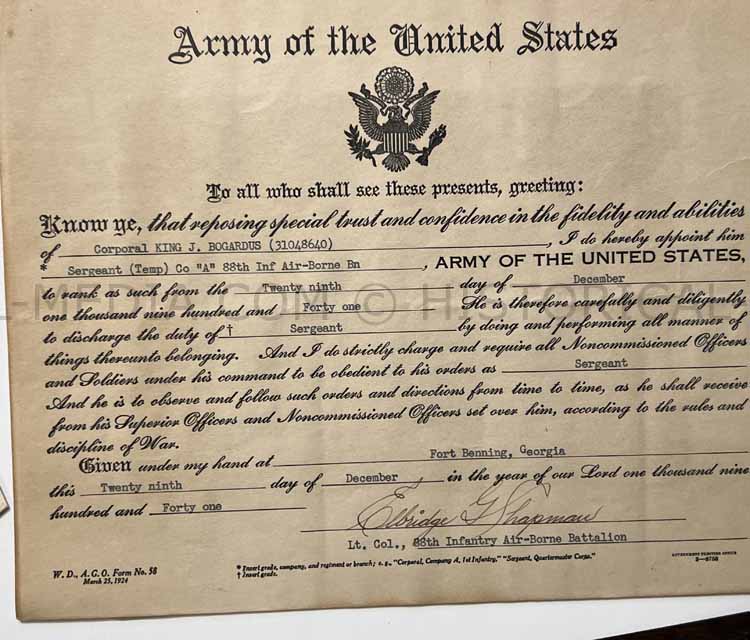 Army of the United States
To all who shall see these presents, greeting:
Know ye, that reposing special trust and confidence in the fidelity and abilities
of Corporal KING J. BOGARDUS (31048640), I do hereby appoint him
* Sergeant (Temp) Co "A" 88th Inf Air-Borne Bn, ARMY OF THE UNITED STATES,
to rank as such from the Twenty ninth day of December
one thousand nine hundred and Forty one. He is therefore carefully and diligently
to discharge the duty of † Sergeant by doing and performing all manner of
things thereunto belonging. And I do strictly charge and require all Noncommissioned Officers
and Soldiers under his command to be obedient to his orders as Sergeant
And he is to observe and follow such orders and directions from time to time, as he shall receive
from his Superior Officers and Noncommissioned Officers set over him, according to the rules and
discipline of War.
Given under my hand at Fort Benning, Georgia
this Twenty ninth day of December, in the year of our Lord one thousand nine
hundred and Forty one
Elbridge G Chapman
Lt. Col., 88th Infantry Air-Borne Battalion
W. D., A. G. O. Form No. 58
March 25, 1924
* Insert grade, company, and regiment or branch; e. g., "Corporal, Company A, 1st Infantry," "Sergeant, Quartermaster Corps."
† Insert grade.
GOVERNMENT PRINTING OFFICE
3—6758